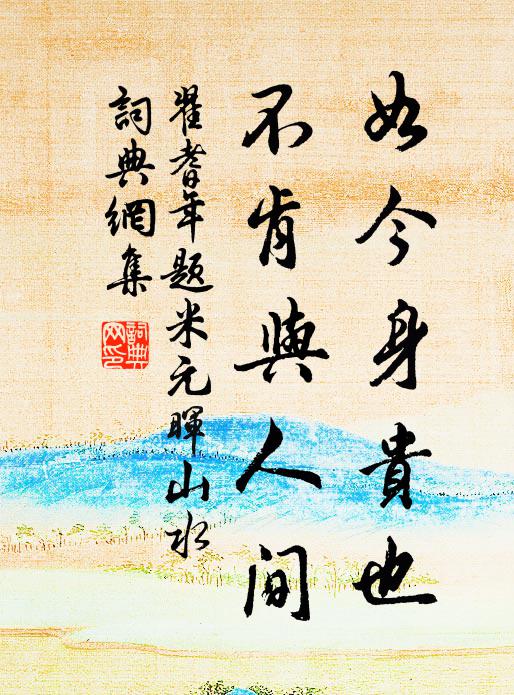 如今身貴也
不肯與人间
翟耆年題米元暉山水
詞典網集
詞典
网印